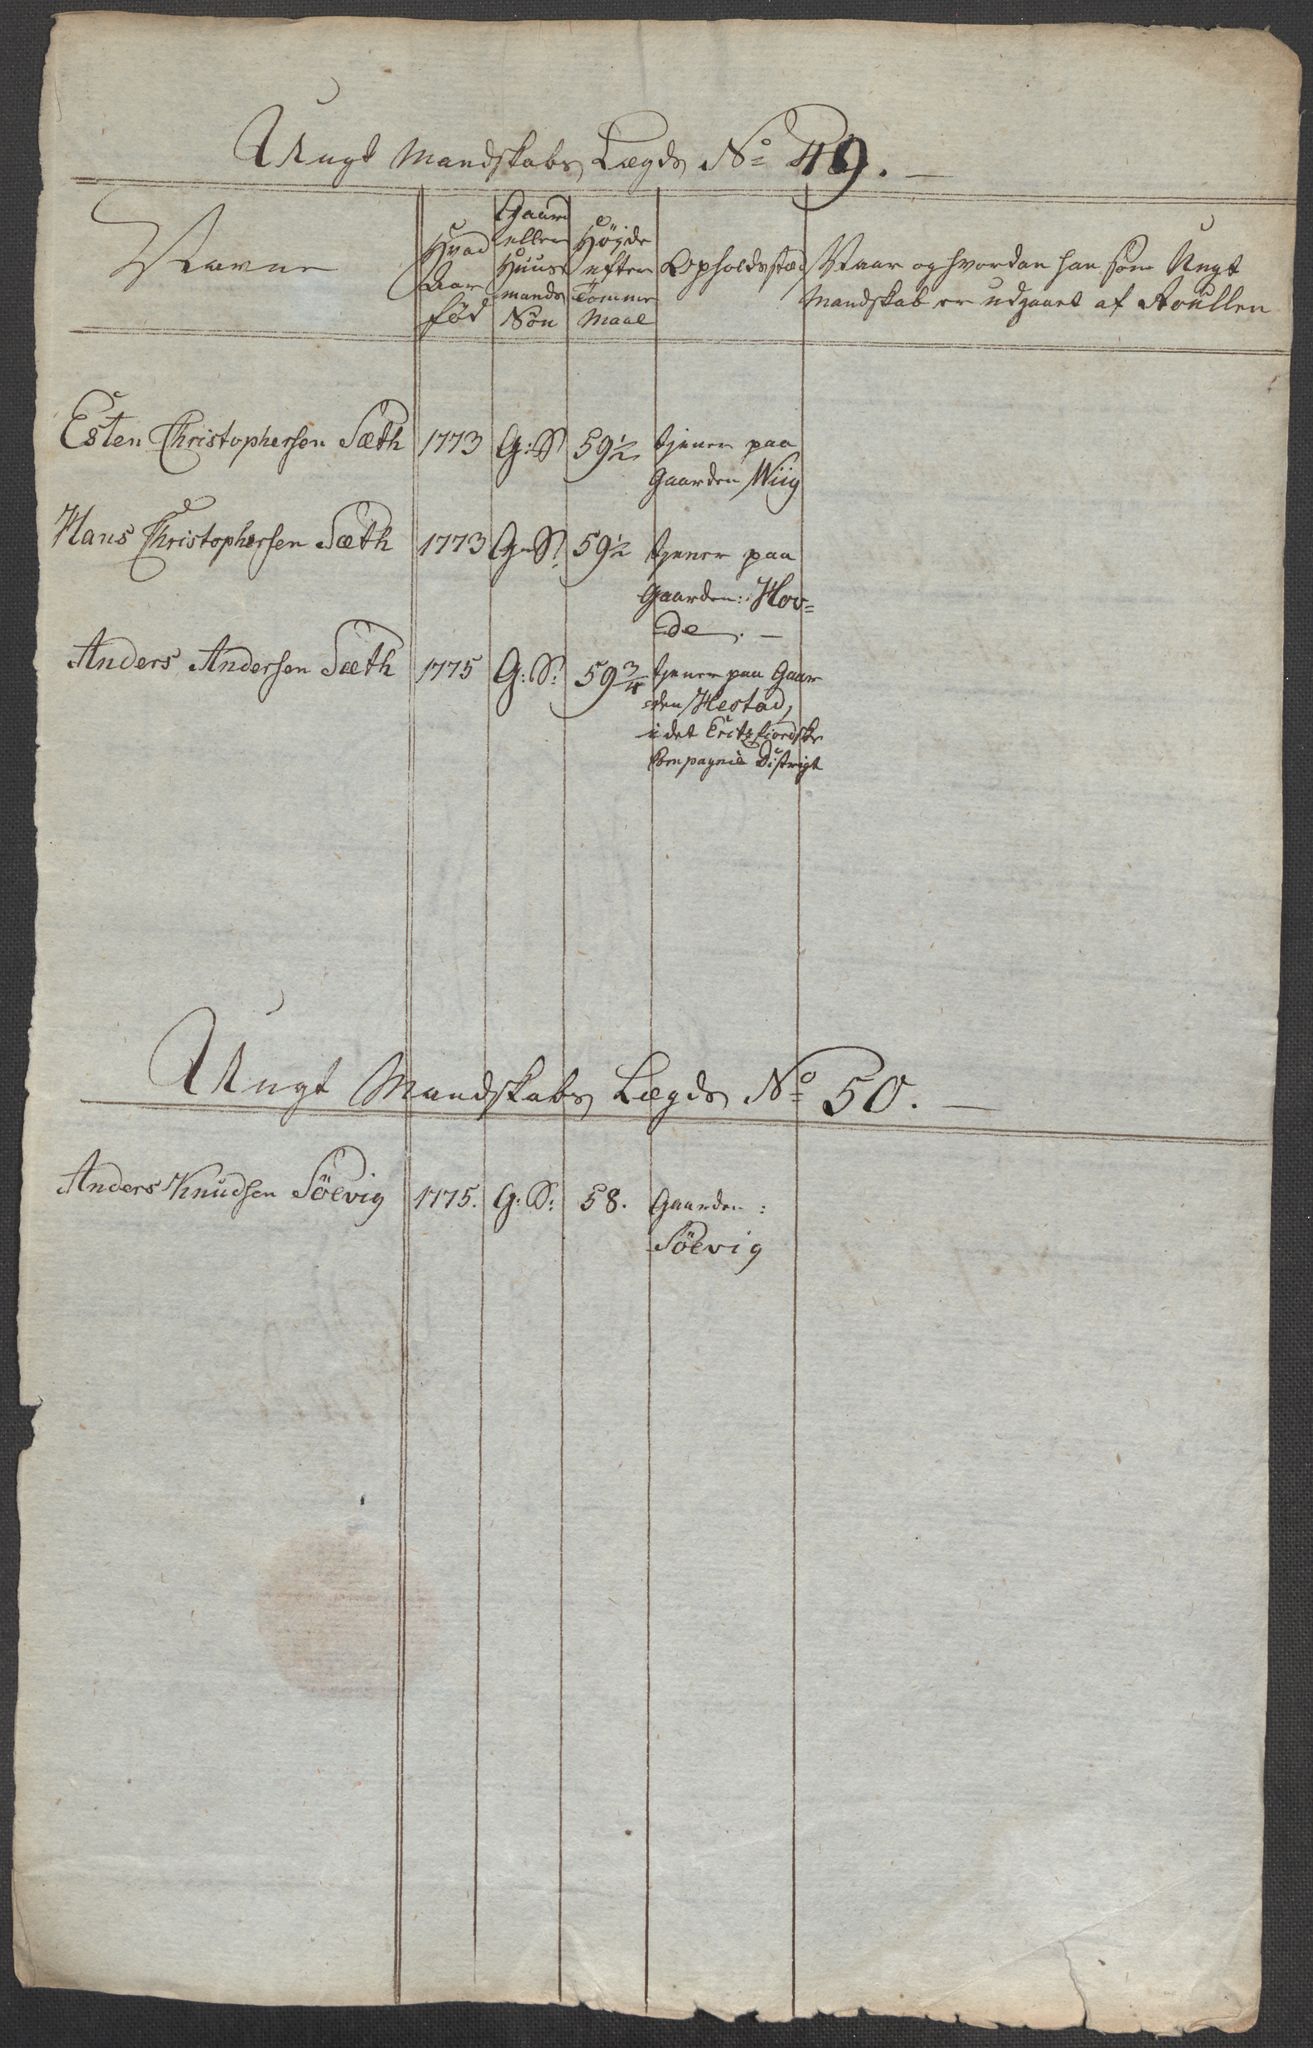 Ungt Mandskabs Lægds No 49.
Navne
Hvad Aar fød
Gaard eller Huusmands Søn
Højde efter Tomme Maal
Opholdsstæd
Naar og hvordan han som Ungt
Mandskab er udgaaet af Roullen
Esten Christophersen Sæth 1773 G:S 59 1/2 tjener paa
Gaarden Wiig
Hans Christophersen Sæth 1773 G:S: 59 1/2 tjener paa
Gaarden: Hov=
de. —
Anders Andersen Sæth 1775 G:S: 59 3/4 tjener paa Gaar
den Hestad,
i det Eritzfiordske
Compagnie Distrigt
Ungt Mandskabs Lægds No 50. —
Anders Knudsen Söevig 1775. G:S: 58. Gaarden:
Söevig